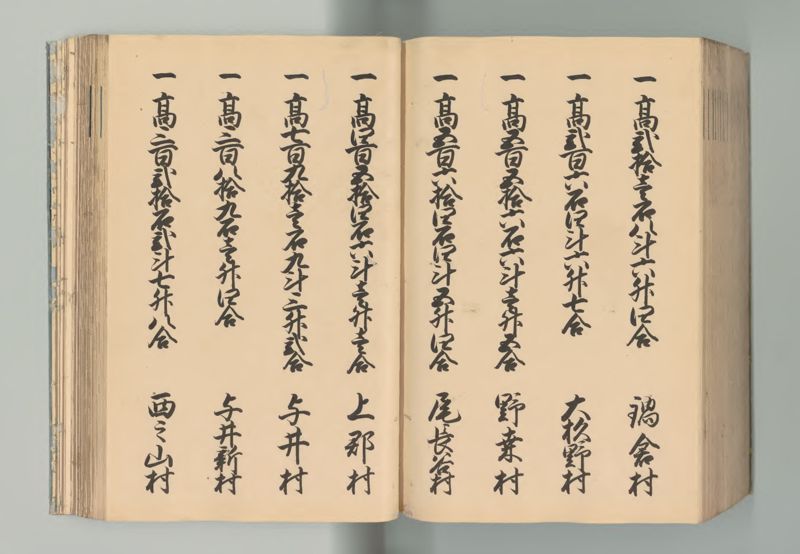 一 高弐拾壱石八斗六升四合 鍋倉村
一 高弐百六石四斗六升七合 大杉野村
一 高五百五拾六石六斗壱升五合 野桑村
一 高五百六拾四石四斗五升四合 尾長谷村
一 高四百五拾四石六斗壱升壱合 上郡村
一 高七百九拾壱石九斗三升弐合 与井村
一 高三百八拾九石壱升四合 与井新村
一 高三百弐拾石弐斗七升八合 西之山村